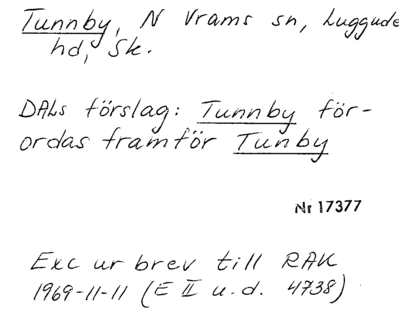 Tunnby, N Vrams sn, Luggude
hd, Sk.
DALs förslag: Tunnby för-
ordas framför Tunby
Nr 17377
Exc ur brev till RAK
1969-11-11 (E II u.d. 4738)